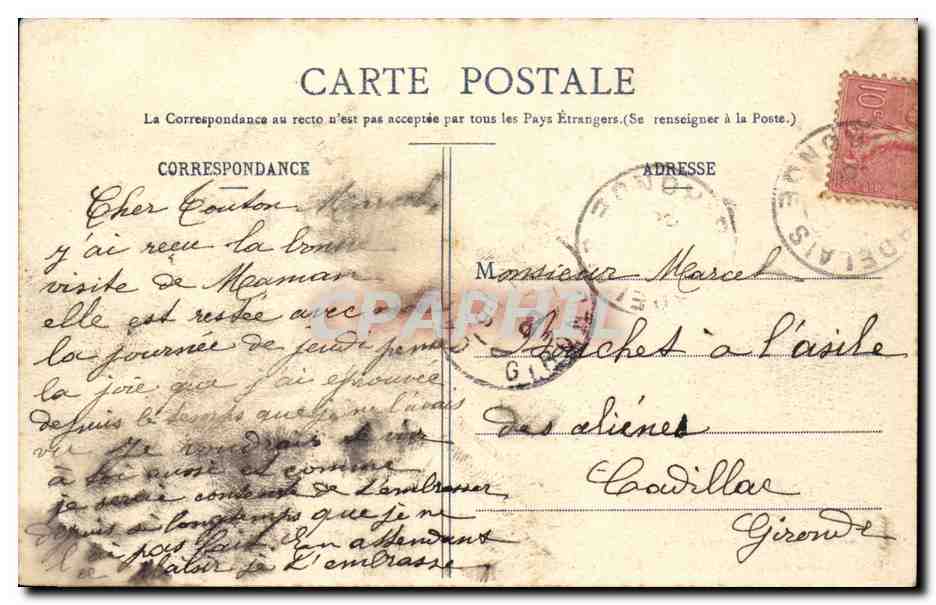 CARTE POSTALE
La Correspondance au recto n'est pas acceptée par tous les Pays Étrangers. (Se renseigner à la Poste.)
CORRESPONDANCE
ADRESSE
10c
Cher Touton Marcel
j'ai reçu la bonne
visite de Maman
elle est restée avec
la journée de jeudi pense
la joie que j'ai éprouvée
depuis le temps que je ne l'avais
vue Je voudrais
à toi aussi et comme
je serais contente de t'embrasser
depuis si longtemps que je ne
l'ai pas fait. En attendant
ce plaisir je t'embrasse
Monsieur Marcel
à l'asile
des aliénés
Cadillac
Gironde
CPAPHIL